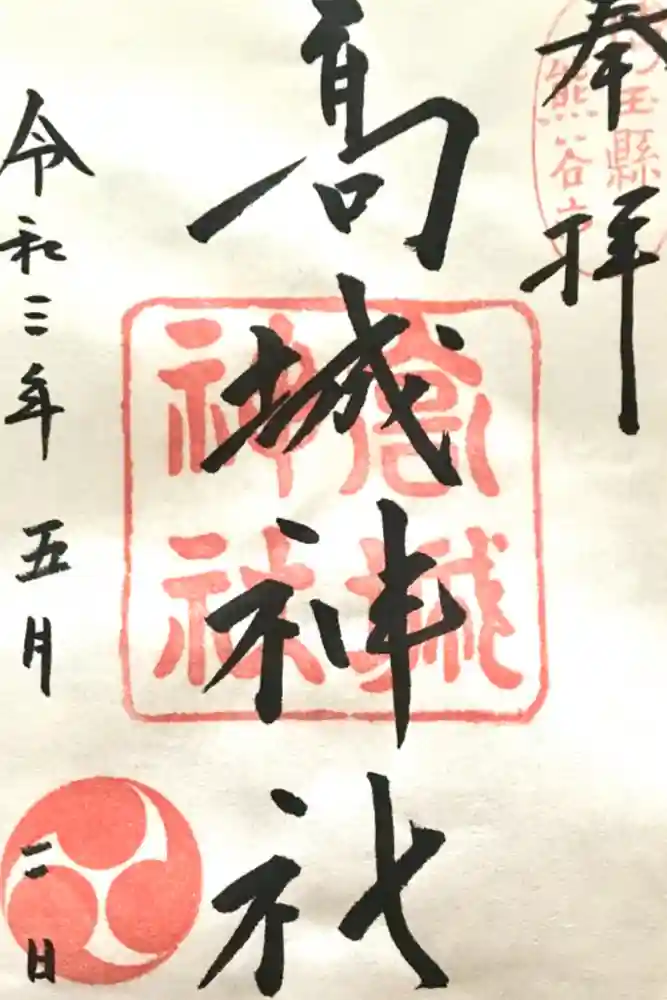 奉拝
埼玉縣
熊谷市
髙城神社
高城
神社
令和三年五月二日